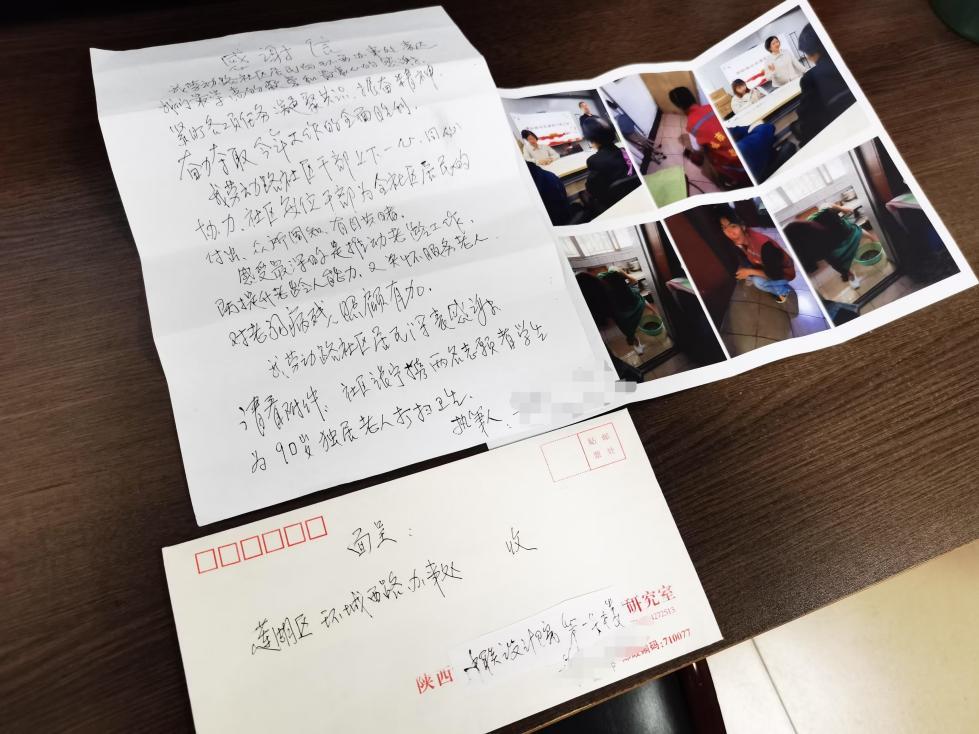 感谢信
我劳动路社区居民向环西办事处表达
我们
紧盯各项任务凝聚共识、振奋精神
奋力夺取今年工作的全面胜利.
我劳动路社区干部上下一心、同心
协力.社区每位干部为全社区居民的
付出、众所周知、有目共睹.
感受最深的是推动老龄工作
既提升老龄人能力、又关怀服务老人.
对老弱病残人照顾有加.
我劳动路社区居民们深表感谢
请看附件:社区张宁携两名志愿者学生
为90岁独居老人打扫卫生.
执笔人:
贴邮
票处
面呈:
莲湖区环城西路办事处 收
陕西 设计院第一 研究室
4272513
邮政编码:710077